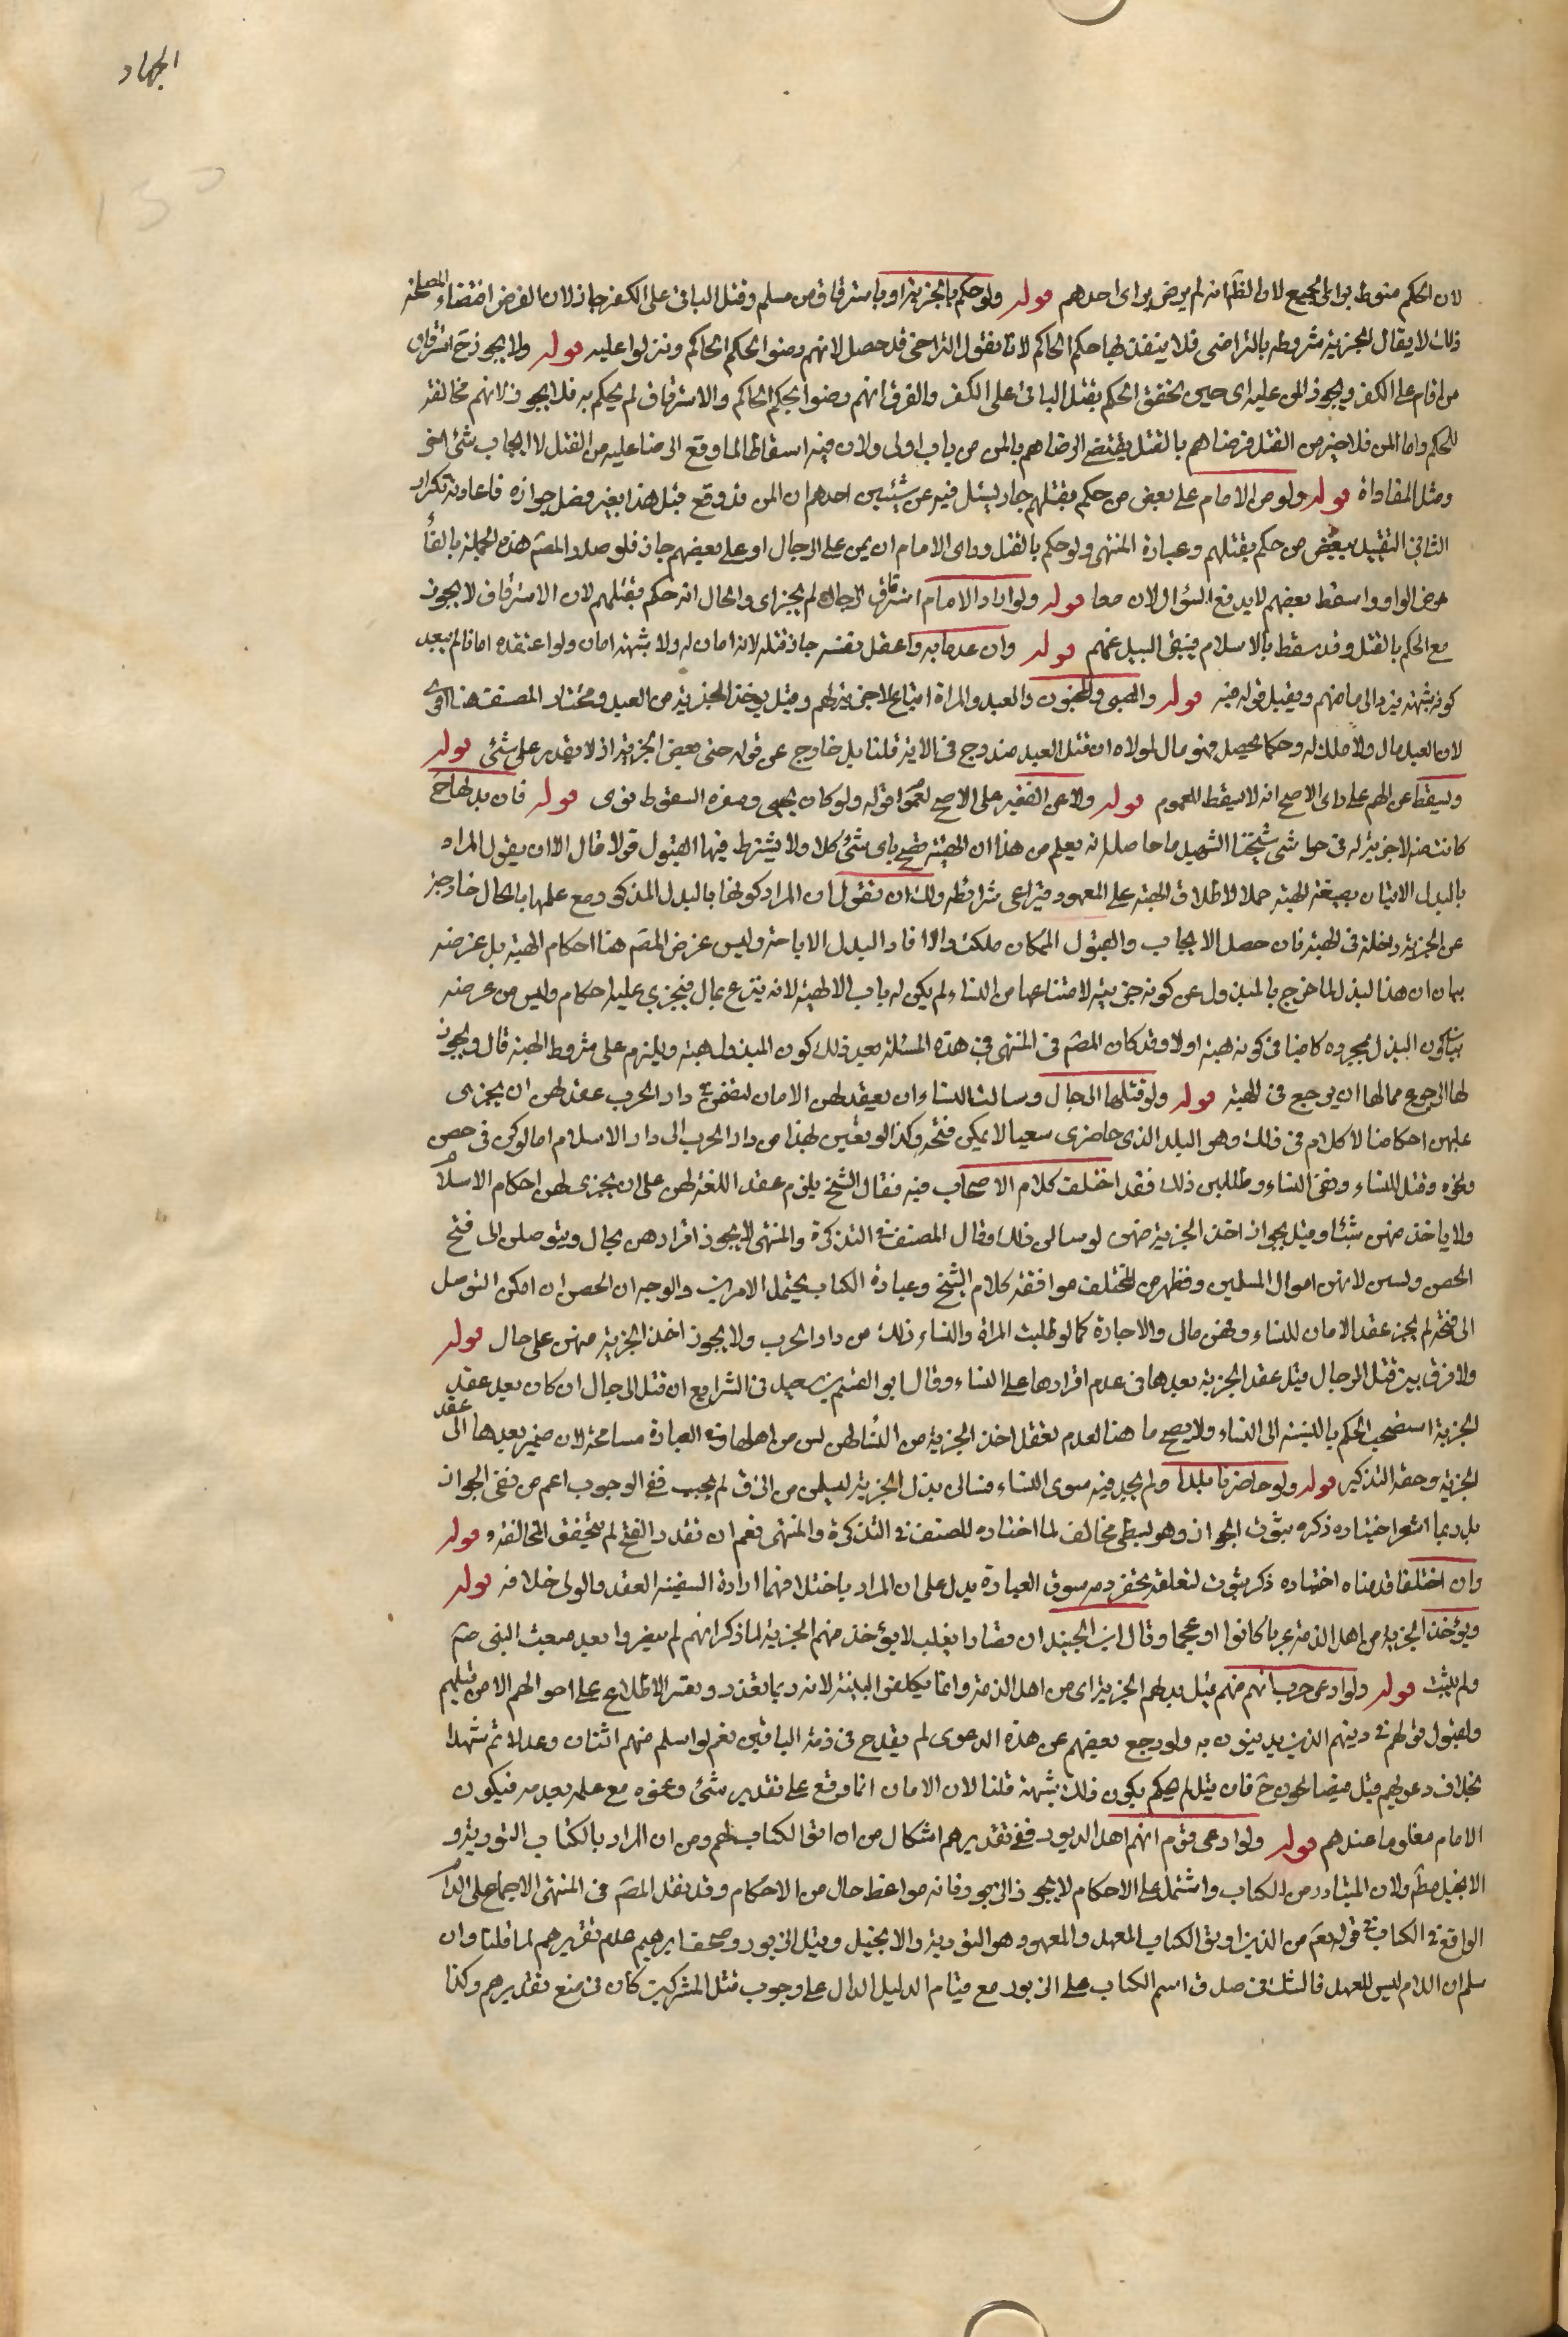 الجهاد
لان الحكم منوط براى الجميع لا والظاهر انه لم يرض براى احدهم قوله ولو حكم بالجزية او باسترقاق من مسلم وقتل الباقى على الكفر جاز لان الغرض اقتضاء المصلحة
ذلك لا يقال الجزية مشروطه بالتراضى فلا ينفذ بها حكم الحاكم لانا نقول التراضى قد حصل لانهم رضوا بحكم الحاكم ونزلوا عليه قوله ولا يجوز ح استرقاق
من اقام على الكفر ويجوز المن عليه اى حين تحقق الحكم بقتل الباقى على الكفر والفرق انهم رضوا بحكم الحاكم والاسترقاق لم يحكم به فلا يجوز لانهم مخالفة
للحكم واما المن فلا جبر من القتل فرضاهم بالقتل يقتضى الرضاهم بالمن من باب اولى ولان فيه اسقاطا لما وقع الرضا عليه من القتل لا ايجاب شئ اخر
ومثل المفاداة قوله ولو من الامام على بعض من حكم بقتلهم جاز يسئل فيه عن شيئين احدهم ان المن قد وقع قبل هذا بغير فصل جوازه فاعادته تكرار
الثانى التقييد ببعض من حكم بقتلهم وعبارة المنتهى ولو حكم بالقتل وراى الامام ان يمن على الرجال او على بعضهم جاز فلو صدر المصنف هذه الجملة بالفا
عوض الواو واسقط بعضهم لا يدفع السؤالان معا قوله ولو اراد الامام استرقاق الرجال لم يجز اى والحال انه حكم بقتلهم لان الاسترقاق لا يجوز
مع الحكم بالقتل وقد سقط بالاسلام فينتفى السبيل عنهم قوله وان علم ما به واعقل نفسه جاز قتله لانه امان له ولا شبهة امان ولو اعتقده امانا لم يبعد
كونه شبهة فيرد الى مامنهم ويقبل قوله فيه قوله والصبى والمجنون والعبد والمراة اتباع لا جزية لهم وقيل يؤخذ الجزية من العبد ومختار المصنف هنا اقوى
لان العبد مال ولا ملك له وحكما يحصل فهو مال لمولاه ان قتل العبد مندرج فى الاية قلنا بل خارج عن قوله حتى يعطى الجزية اذ لا يقدر على شئ قوله
ويسقط عن الهم على راى الاصح انه لا يسقط للعموم قوله ولا عن الفقير على الاصح لعموم قوله ولو كان يجبى وصغره السقوط قوى قوله فان بذلها ح
كانت هبة لا جزية له فى حواشى شيخنا الشهيد ما حاصله انه يعلم من هذا ان الهبة تصح باى شئ كلا ولا يشترط فيها القبول قولا قال الا ان يقول المراد
بالبدل الاتيان بصيغة الهبة حملا لاطلاق الهبة على المعهود فيراعى شرائطه ولك ان تقول ان المراد كونها بالبدل المذكور مع علمها بالحال خارجة
عن الجزية داخلة فى الهبة فان حصل الايجاب والقبول المكان ملكت والا افاد البدل الاباحة وليس غرض المصنف هنا احكام الهبة بل غرضه
بيان ان هذا البذل لما خرج بالمبذول عن كونه جزية لامتناعها من النساء لم يكن له باب الا الهبة لانه تبرع بمال فيجرى عليه احكام وليس من غرضه
بيان كون البذل بمجرده كافيا فى كونه هبة اولا وقد كان المصنف فى المنتهى فى هذه المسئلة بعيد ذلك كون المبذول هبة ويلزم على شروط الهبة قال ويجوز
لها الرجوع مما لها ان يرجع فى الهبة قوله ولو قتلها الرجال وسالت النساء ان يعقد لهن الامان لنقض دار الحرب عقد لهن ان يجرى
عليهن احكامنا لا كلام فى ذلك وهو البلد الذى حاضرى سعيا لا يمكن فتحه وكذا لو بعثن لهذا من دار الحرب الى دار الاسلام اما لو كن فى حصن
ونحوه وقتل للنساء وبقى النساء وطلبن ذلك فقد اختلف كلام الاصحاب فيه فقال الشيخ يلزم عقد اللغة لهن على ان يجرى لهن احكام الاسلام
ولا ياخذ منهن شيئا وقيل يجواز اخذ الجزية منهن لو سالن ذلك وقال المصنف فى التذكرة والمنتهى لا يجوز اقرارهن بحال ويتوصلن الى فتح
الحصن وسبى لانهن اموال المسلمين وظهر من المختلف موافقة كلام الشيخ وعبارة الكتاب يحتمل الامرين والوجه ان الحصن ان امكن التوصل
الى فتحه لم يجز عقد الامان للنساء وهن مالى والاجازة كما لو طلبت المراة والنساء ذلك من دار الحرب ولا يجوز اخذ الجزية منهن على حال قوله
ولا فرق بين قتل الرجال قبل عقد الجزية بعدها فى عدم اقرارها على النساء وقال ابو القسم بن سعيد فى الشرايع ان قتل الرجال ان كان بعد عقد
الجزية استصحب الحكم بالنسبة الى النساء ولا يصح ما هنا لعدم تعقل اخذ الجزية من النساء لهن لسن من اهلها وفى العبارة مسامحة لان ضمير بعدها الى عقد
الجزية وحقه التذكير قوله ولو حاضرنا بلدا ولم نجد فيه سوى النساء فسالن بذل الجزية ليسلمن من الرق لم يجب فنفى الوجوب اعم من نفى الجواز
بل ربما اشعر اختياره ذكره ثبوت الجواز وهو يبطى مخالف لما اختاره المصنف فى التذكرة والمنتهى نعم ان تقدر الفتح لم يتحقق المخالفة قوله
وان اختلفا قدمناه اختياره ذكر ثبوت لتعلقه بحقر دم سوق العبارة يدل على ان المراد باختلافهما ارادة السفيه العقد والولى خلافه قوله
ويؤخذ الجزية من اهل الذمة عربا كانوا او عجما وقال ابن الجنيد ان نصارا بغلب لا يؤخذ منهم الجزية لما ذكر انهم لم يفروا بعد مبعث النبى صم
ولم يثبت قوله ولو ادعى حرب انهم منهم قبل بذلهم الجزية اى من اهل الذمة وانما يكلفوا البينة لانه ربما تعذر وتعسر الاطلاع على احوالهم الا من قبلهم
ولقبول قولهم فى دينهم الذين يدينون به ولو رجع بعضهم عن هذه الدعوى لم يقدح فى ذمة الباقين نعم لو اسلم منهم اثنان وعدلا ثم شهدا
بخلاف دعوهم قبل فيضالحون ح فان قيل لم لا يكون ذلك شبهة قلنا لان الامان انما وقع على تقدير شئ وغيره مع علمه بعدمه فيكون
الامام معلوما عندهم قوله ولو ادعى قوم انهم اهل الزبور ففى تقديرهم اشكال من ان اتوا الكتاب لهم ومن ان المراد بالكتاب التورية و
الانجيل مط ولان المتبادر من الكتاب واشتمل على الاحكام لا يجوز الزبور فانه مواعظ حال من الاحكام وقد نقل المصنف فى المنتهى الاجماع على ان
الواقع فى الكتاب فى قوله تع من الذين اوتوا الكتاب للعهد والمعهود هو التورية والانجيل وقيل الزبور وصحف ابرهيم عدم تقريرهم لما قلنا وان
سلم ان اللام ليس للعهد فالشك فى صدق اسم الكتاب على الزبور مع قيام الدليل الدال على وجوب قتل المشركين كان فى منع تقديرهم وكذا